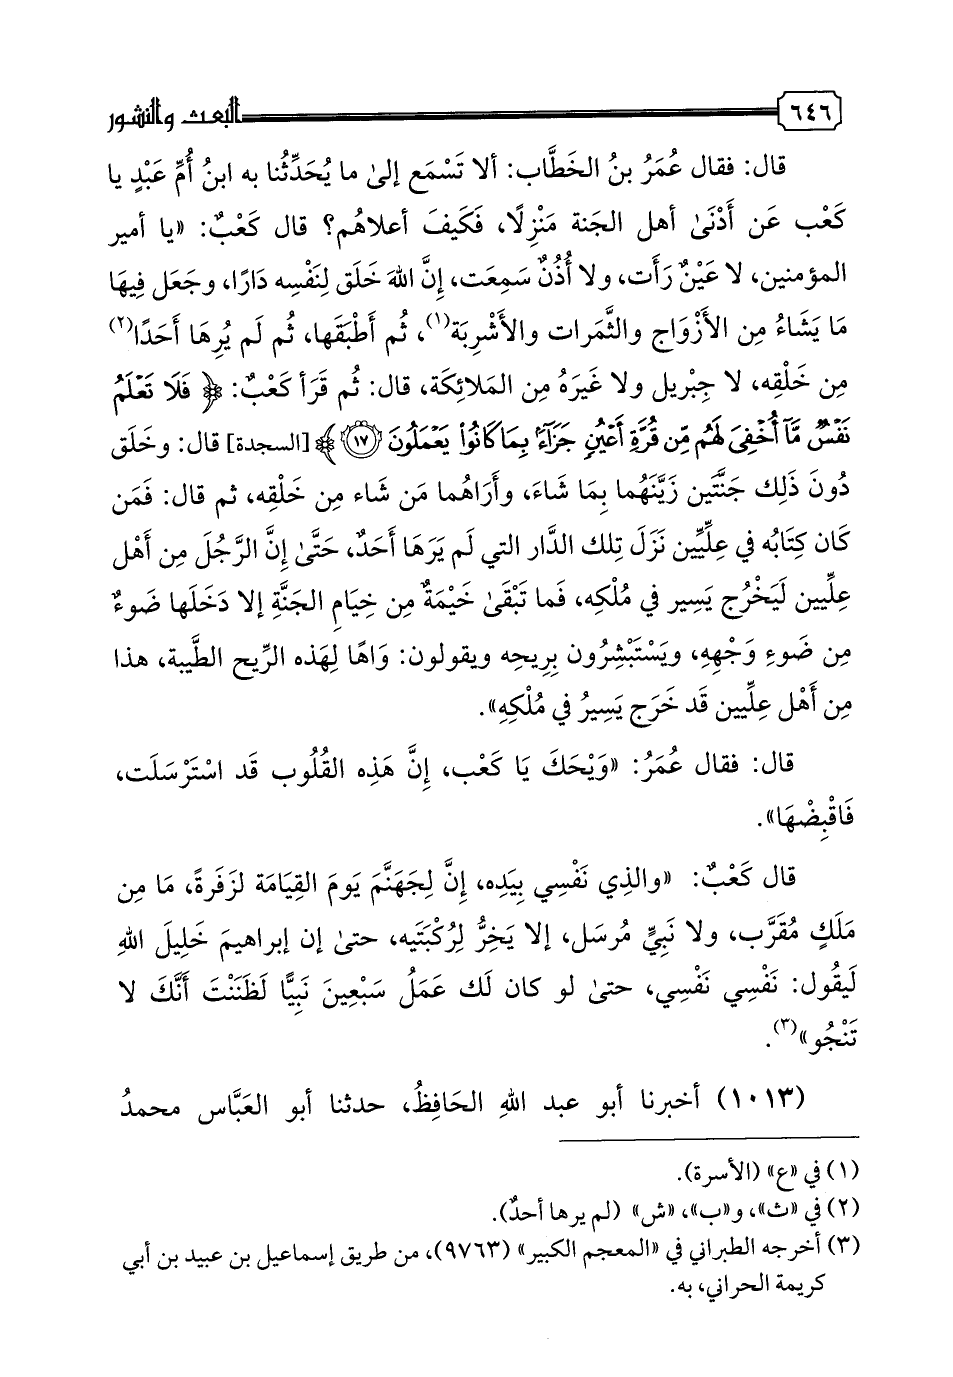 ٦٤٦ البعث والنشور
قال: فقال عُمَرُ بنُ الخَطَّاب: ألا تَسْمَع إلىٰ ما يُحَدِّثُنا به ابنُ أُمِّ عَبْدٍ يا
كَعْب عَن أَدْنَىٰ أهل الجَنة مَنْزِلًا، فَكَيفَ أعلاهُم؟ قال كَعْبٌ: «يا أمير
المؤمنين، لا عَيْنٌ رَأَت، ولا أُذُنٌ سَمِعَت، إنَّ اللهَ خَلَق لِنَفْسِه دَارًا، وجَعَل فِيهَا
مَا يَشَاءُ مِن الأَزْوَاج والثَّمَرات والأَشْرِبَة(١)، ثُم أَطْبَقَها، ثُم لَم يُرِهَا أَحَدًا(٢)
مِن خَلْقِه، لا جِبْريل ولا غَيرَهُ مِن المَلائِكَة، قال: ثُم قَرَأ كَعْبٌ: ﴿فَلَا تَعْلَمُ
نَفْسٌ مَّآ أُخْفِىَ لَهُم مِّن قُرَّةِ أَعْيُنٍ جَزَآءًۢ بِمَا كَانُوا۟ يَعْمَلُونَ ١٧﴾ [السجدة] قال: وخَلَق
دُونَ ذَلِك جَنَّتَين زَيَّنَهُما بِمَا شَاءَ، وأَرَاهُما مَن شَاء مِن خَلْقِه، ثم قال: فَمَن
كَان كِتَابُه في عِلِّيِّين نَزَلَ تِلك الدَّار التي لَم يَرَهَا أَحَدٌ، حَتَّىٰ إنَّ الرَّجُلَ مِن أَهْل
عِلِّيين لَيَخْرُج يَسِير في مُلْكِه، فَما تَبْقَىٰ خَيْمَةٌ مِن خِيَامِ الجَنَّةِ إلا دَخَلَها ضَوءٌ
مِن ضَوءِ وَجْهِهِ، ويَسْتَبْشِرُون بِرِيحِه ويقولون: وَاهًا لِهَذه الرِّيح الطَّيبة، هذا
مِن أَهْل عِلِّيين قَد خَرَج يَسِيرُ في مُلْكِهِ».
قال: فقال عُمَرُ: «وَيْحَكَ يَا كَعْب، إنَّ هَذِه القُلُوب قَد اسْتَرْسَلَت،
فَاقْبِضْهَا».
قال كَعْبٌ: «والذِي نَفْسِي بِيَدِه، إنَّ لِجَهَنَّمَ يَومَ القِيَامَة لزَفَرةً، مَا مِن
مَلَكٍ مُقَرَّب، ولا نَبِيٍّ مُرسَل، إلا يَخِرُّ لِرُكْبَتَيه، حتىٰ إن إبراهيمَ خَلِيلَ اللهِ
لَيقُول: نَفْسِي نَفْسِي، حتىٰ لو كان لَك عَمَلُ سَبْعِينَ نَبِيًّا لَظَنَنْتَ أَنَّكَ لا
تَنْجُو»(٣).
(١٠١٣) أخبرنا أبو عبد اللهِ الحَافِظُ، حدثنا أبو العَبَّاس محمدُ
(١) في «ع» (الأسرة).
(٢) في «ث»، و«ب»، «ش» (لم يرها أحدٌ).
(٣) أخرجه الطبراني في «المعجم الكبير» (٩٧٦٣)، من طريق إسماعيل بن عبيد بن أبي
كريمة الحراني، به.